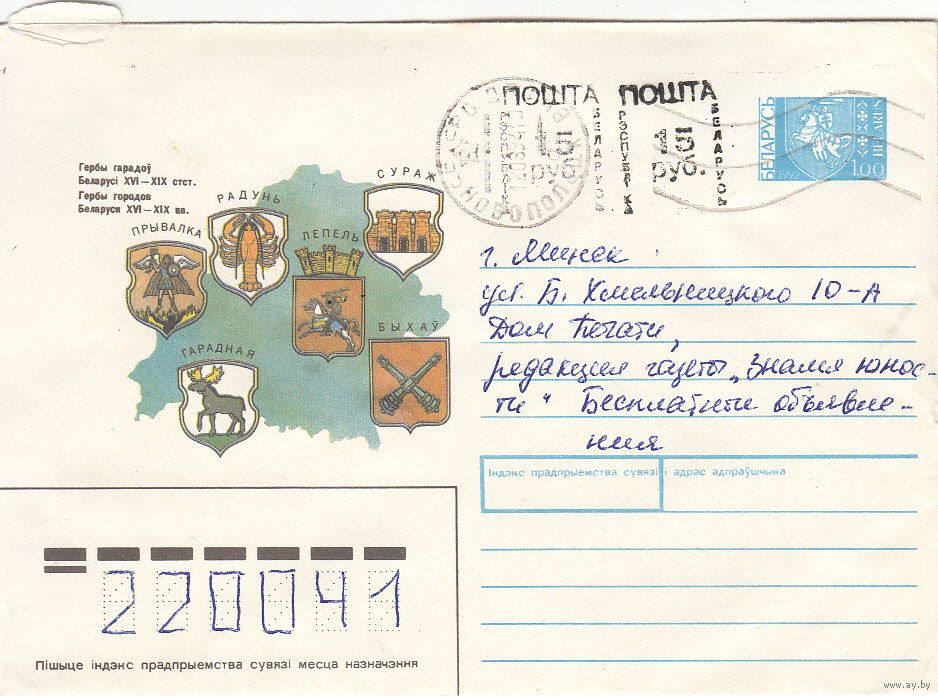 Гербы гарадоў
Беларусі XVI–XIX стст.
Гербы городов
Беларуси XVI–XIX вв.
ПРЫВАЛКА
РАДУНЬ
СУРАЖ
ЛЕПЕЛЬ
БЫХАЎ
ГАРАДНАЯ
ПОШТА
БЕЛАРУСЬ
ПОШТА
РЭСПУБЛІКА
15
руб.
БЕЛАРУСЬ
БЕЛАРУСЬ
1992
1.00
BELARUS
г. Минск
ул. Б. Хмельницкого 10-А
Дом Печати,
редакция газеты „Знамя юнос-
ти" Бесплатные объявле-
ния
Індэкс прадпрыемства сувязі і адрас адпраўшчыка
220041
Пішыце індэкс прадпрыемства сувязі месца назначэння
www.ay.by